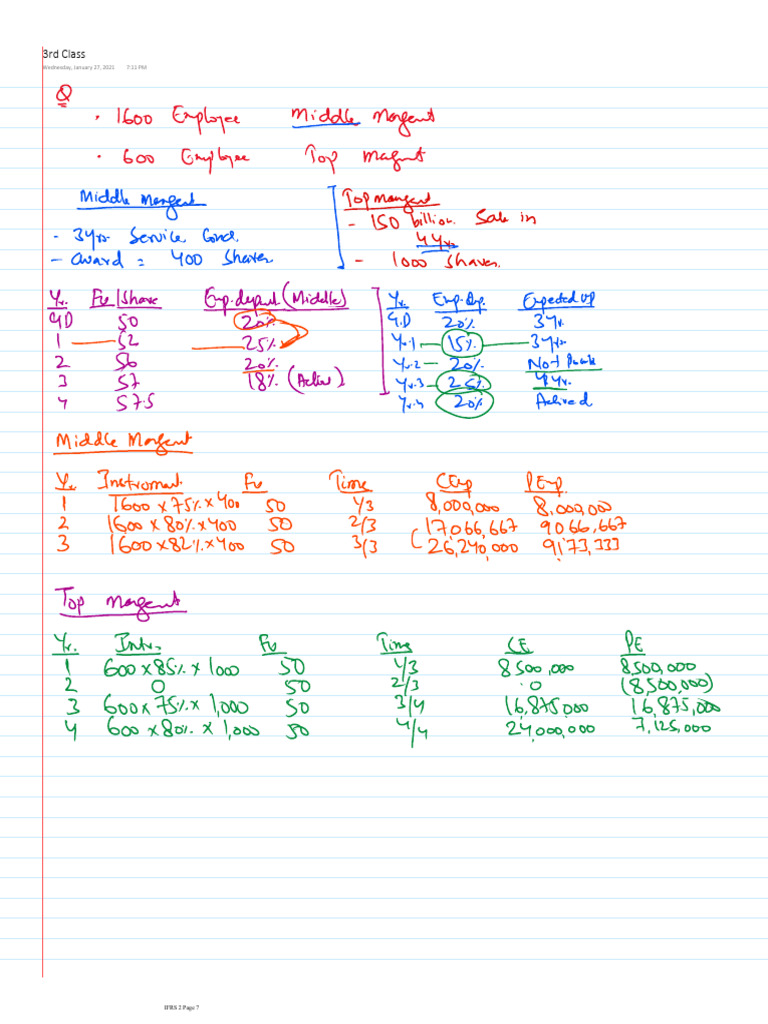 3rd Class
Wednesday, January 27, 2021 7:11 PM
Q
• 1600 Employee Middle Mangent
• 600 Employee Top Magmt
Middle Mangent
- 3 yrs. Service Cond.
- award = 400 Shares
Top mangent
- 150 billion Sale in
4 yrs
- 1000 Shares.
Yr. Fv/Share Emp. depart (Middle)
G.D 50 20%
1 52 25%
2 56 20%
3 57 18% (Actual)
4 57.5
Yr. Emp. Dep. Expected VP
G.D 20% 3 Yr.
Yr.1 15% 3 Yrs.
Yr.2 20% Not Possible
Yr.3 25% 4 Yr.
Yr.4 20% Achieved
Middle Mangent
Yr. Instrument Fv Time CExp PExp.
1 1600 x 75% x 400 50 1/3 8,000,000 8,000,000
2 1600 x 80% x 400 50 2/3 17,066,667 9,066,667
3 1600 x 82% x 400 50 3/3 26,240,000 9,173,333
Top Mangent
Yr. Instr. Fv Time CE PE
1 600 x 85% x 1000 50 1/3 8,500,000 8,500,000
2 0 50 2/3 0 (8,500,000)
3 600 x 75% x 1,000 50 3/4 16,875,000 16,875,000
4 600 x 80% x 1,000 50 4/4 24,000,000 7,125,000
IFRS 2 Page 7